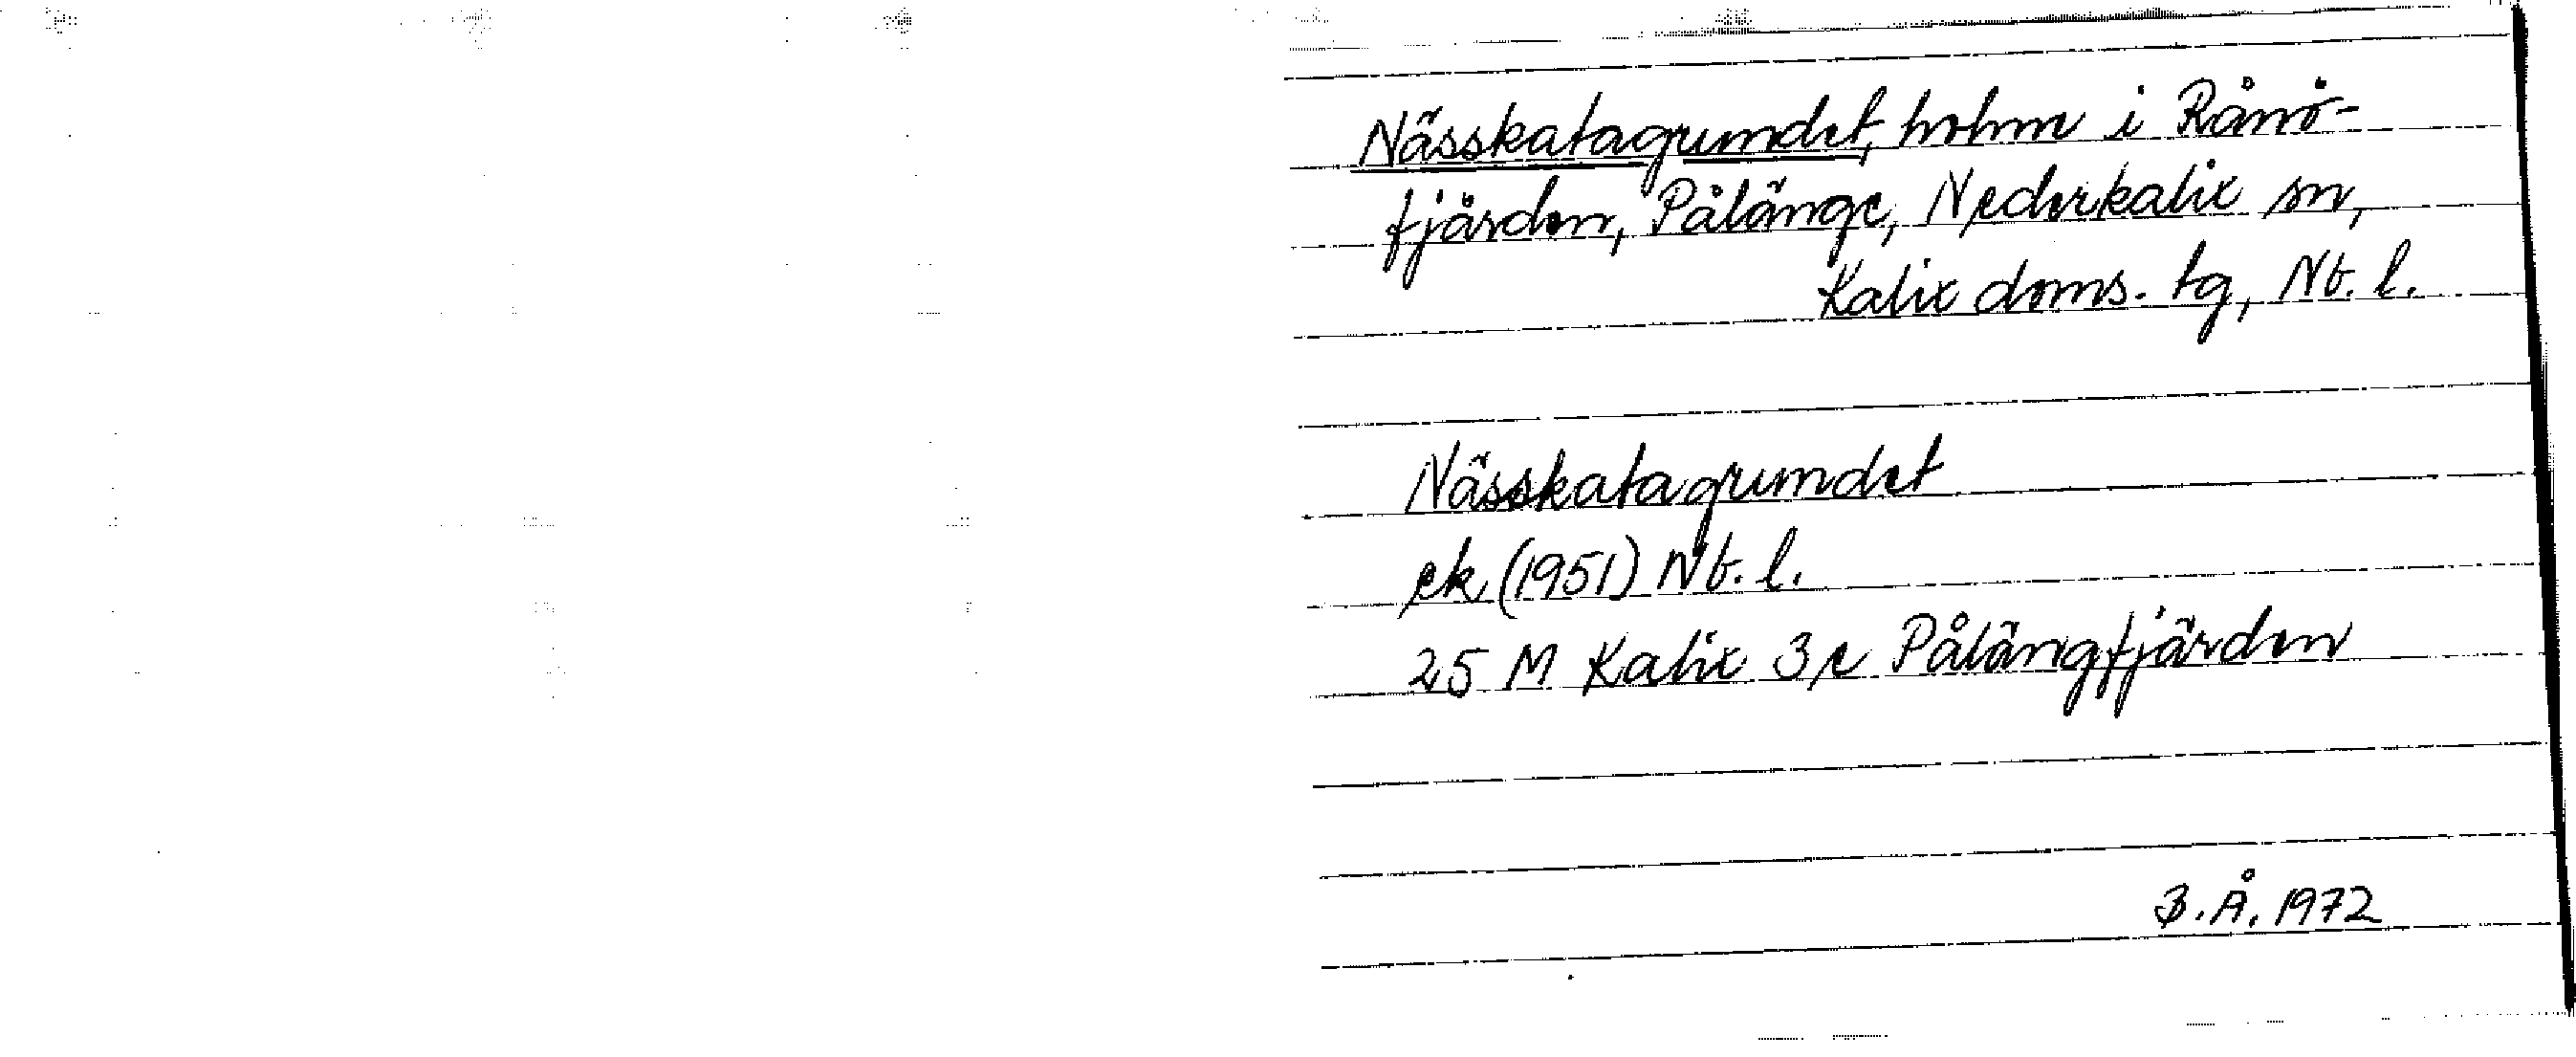 Nässkatagrundet, holme i Rånö-
fjärden, Pålänge, Nederkalix sn,
Kalix doms. tg, Nb. l.
Nässkatagrundet
ek (1951) Nb. l.
25 M Kalix 3e Pålängfjärden
B.Å. 1972